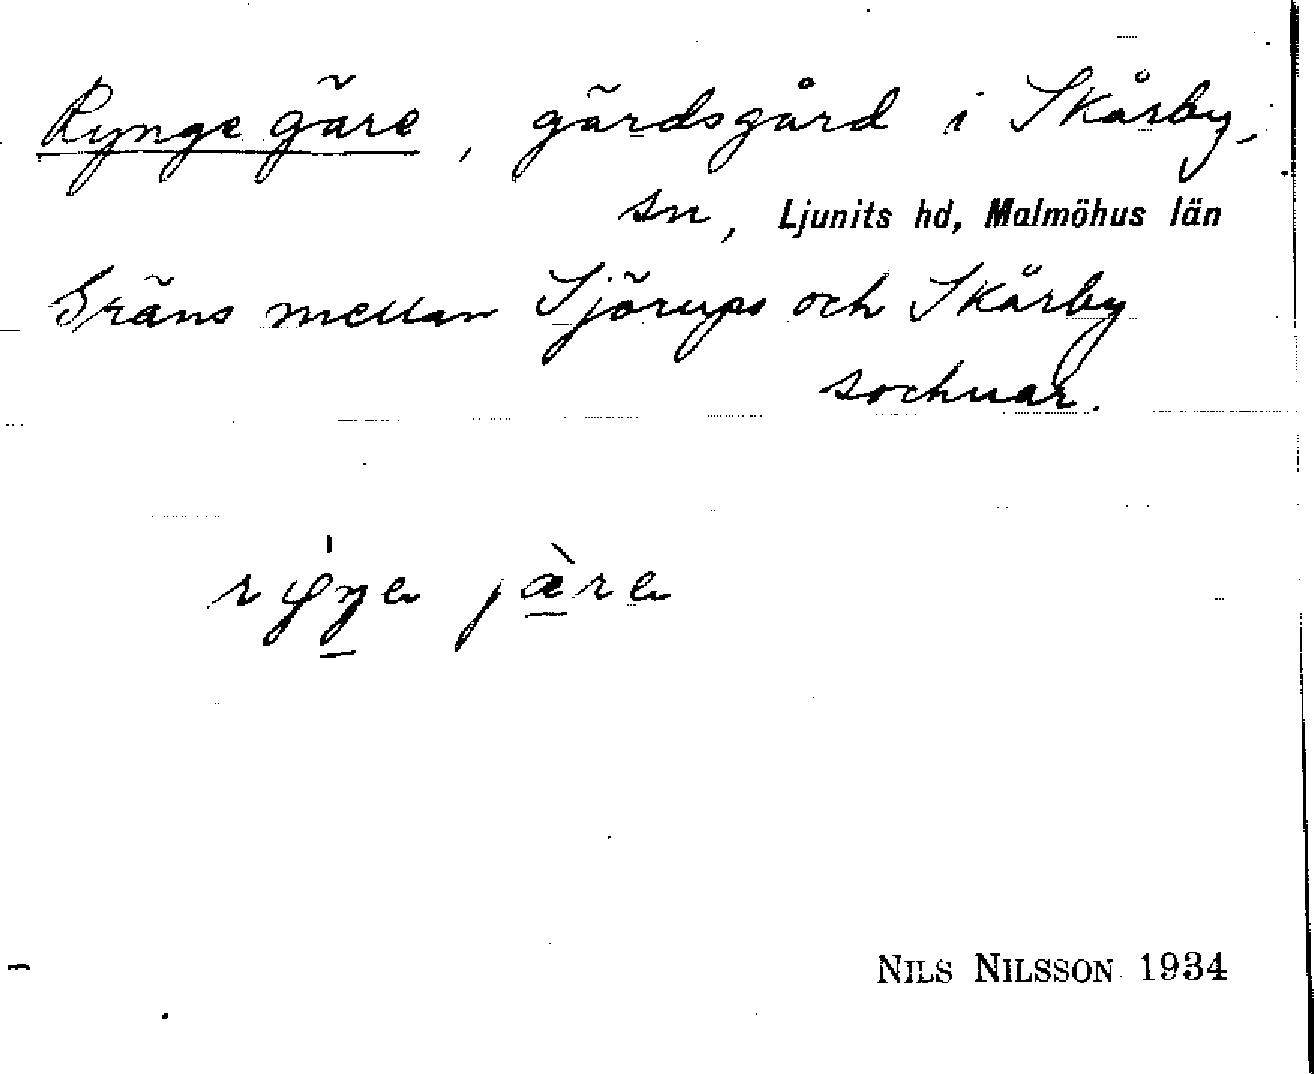 Rynge gäre, gärdsgård i Skårby,
sn, Ljunits hd, Malmöhus län
Gräns mellan Sjörups och Skårby
socknar.
jæ̀re
NILS NILSSON 1934